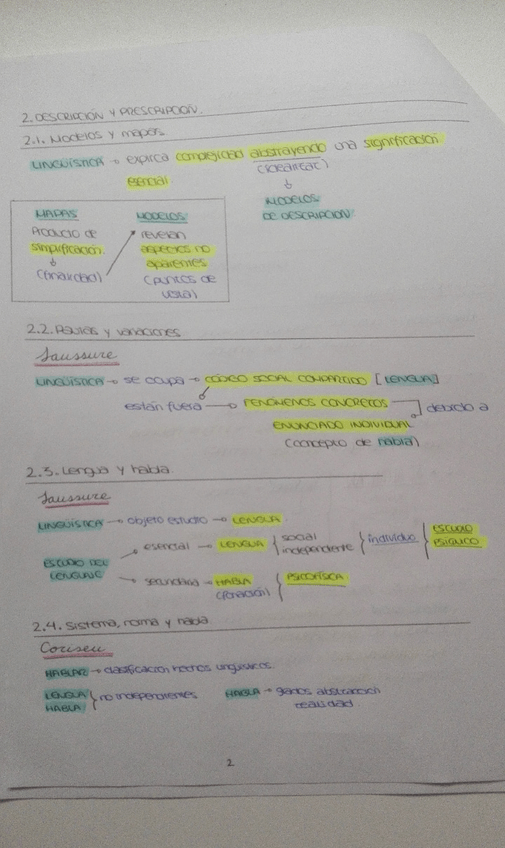 2. DESCRIPCIÓN Y PRESCRIPCIÓN.
2.1. Modelos y mapas
LINGÜÍSTICA → explica complejidad abstrayendo una significación
esencial. (idealizar)
↓
MODELOS
DE DESCRIPCIÓN
MAPAS
Producto de
simplificación.
↓
(finalidad)
MODELOS
revelan
aspectos no
aparentes
(puntos de
vista)
2.2. Pautas y variaciones
Saussure
LINGÜÍSTICA → se ocupa → CÓDIGO SOCIAL COMPARTIDO [LENGUA]
están fuera → FENÓMENOS CONCRETOS debido a
ENUNCIADO INDIVIDUAL
(concepto de habla)
2.3. Lengua y habla
Saussure
LINGÜÍSTICA → objeto estudio → LENGUA
ESTUDIO DEL
LENGUAJE
esencial → LENGUA { social
independente { individuo { ESTUDIO
PSÍQUICO
secundaria → HABLA { PSICOFÍSICA
(fonación)
2.4. Sistema, norma y habla
Coriseu
HABLAR → clasificación hechos lingüísticos.
LENGUA } no independientes
HABLA
HABLA → grados abstracción
realidad
2